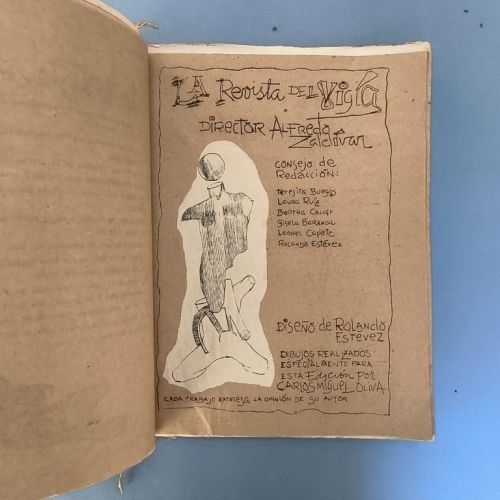 LA Revista DEL Vigía
DIRECTOR ALFREDO
Zaldívar
CONSEJO de
REDACCIÓN:
Teresita Burgos
Laura Ruiz
Bertha Caluff
Gisela Baranda
Leonel Capote
Rolando Estévez
DISEÑO de ROLANDO
ESTÉVEZ
DIBUJOS REALIZADOS
ESPECIALMENTE PARA
ESTA Edición POR
CARLOS MIGUEL OLIVA
CADA TRABAJO EXPRESA LA OPINIÓN DE SU AUTOR